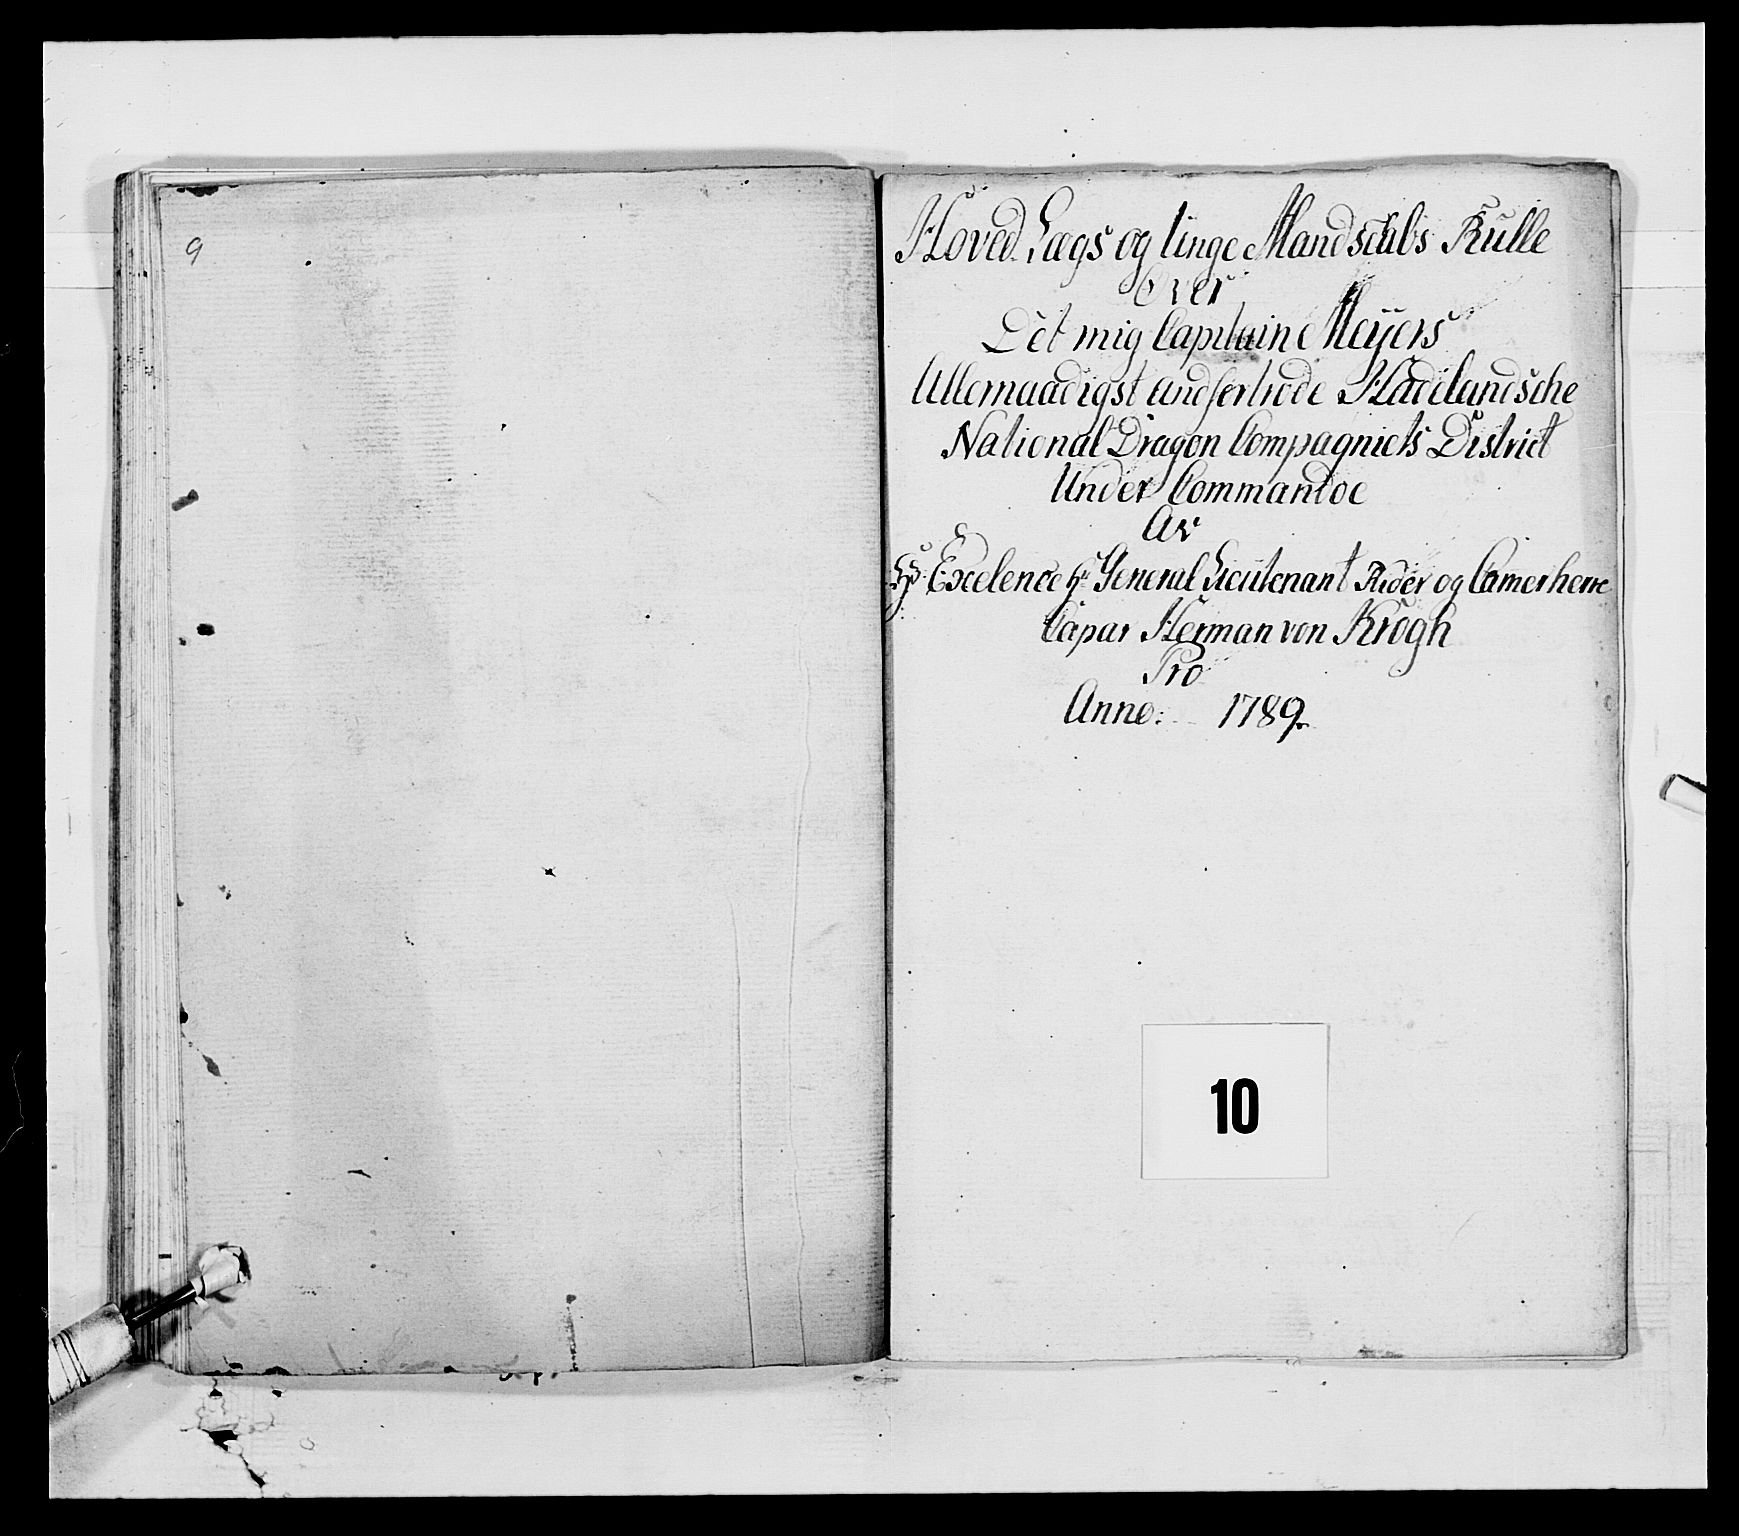 9
Hoved Lægs og Unge Mandschbs Rulle
Over
Det mig Capitain Meÿers
Allernaadigst andfertrode Hadelandsche
National Dragon Compagniets District
Under Commandoe
Av
Excelence Hr General Lieutenant Rider og Camerherre
Capar Herman von Krogh
Pro
Anno: 1789.
10